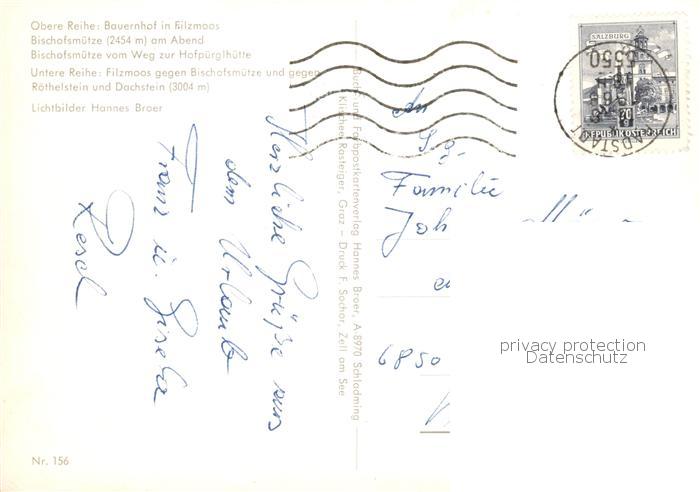 Obere Reihe: Bauernhof in Filzmoos
Bischofsmütze (2454 m) am Abend
Bischofsmütze vom Weg zur Hofpürglhütte
Untere Reihe: Filzmoos gegen Bischofsmütze und gegen
Röthelstein und Dachstein (3004 m)
Lichtbilder Hannes Broer
Herzliche Grüße aus
dem Urlaub
Franz u. Gisela
Resch
Buch- und Farbpostkartenverlag Hannes Broer, A-8970 Schladming
Klischee: Rasteiger, Graz — Druck F. Sochor, Zell am See
SALZBURG
20
REPUBLIK ÖSTERREICH
5550
An
Familie
Joh
6850
privacy protection
Datenschutz
Nr. 156